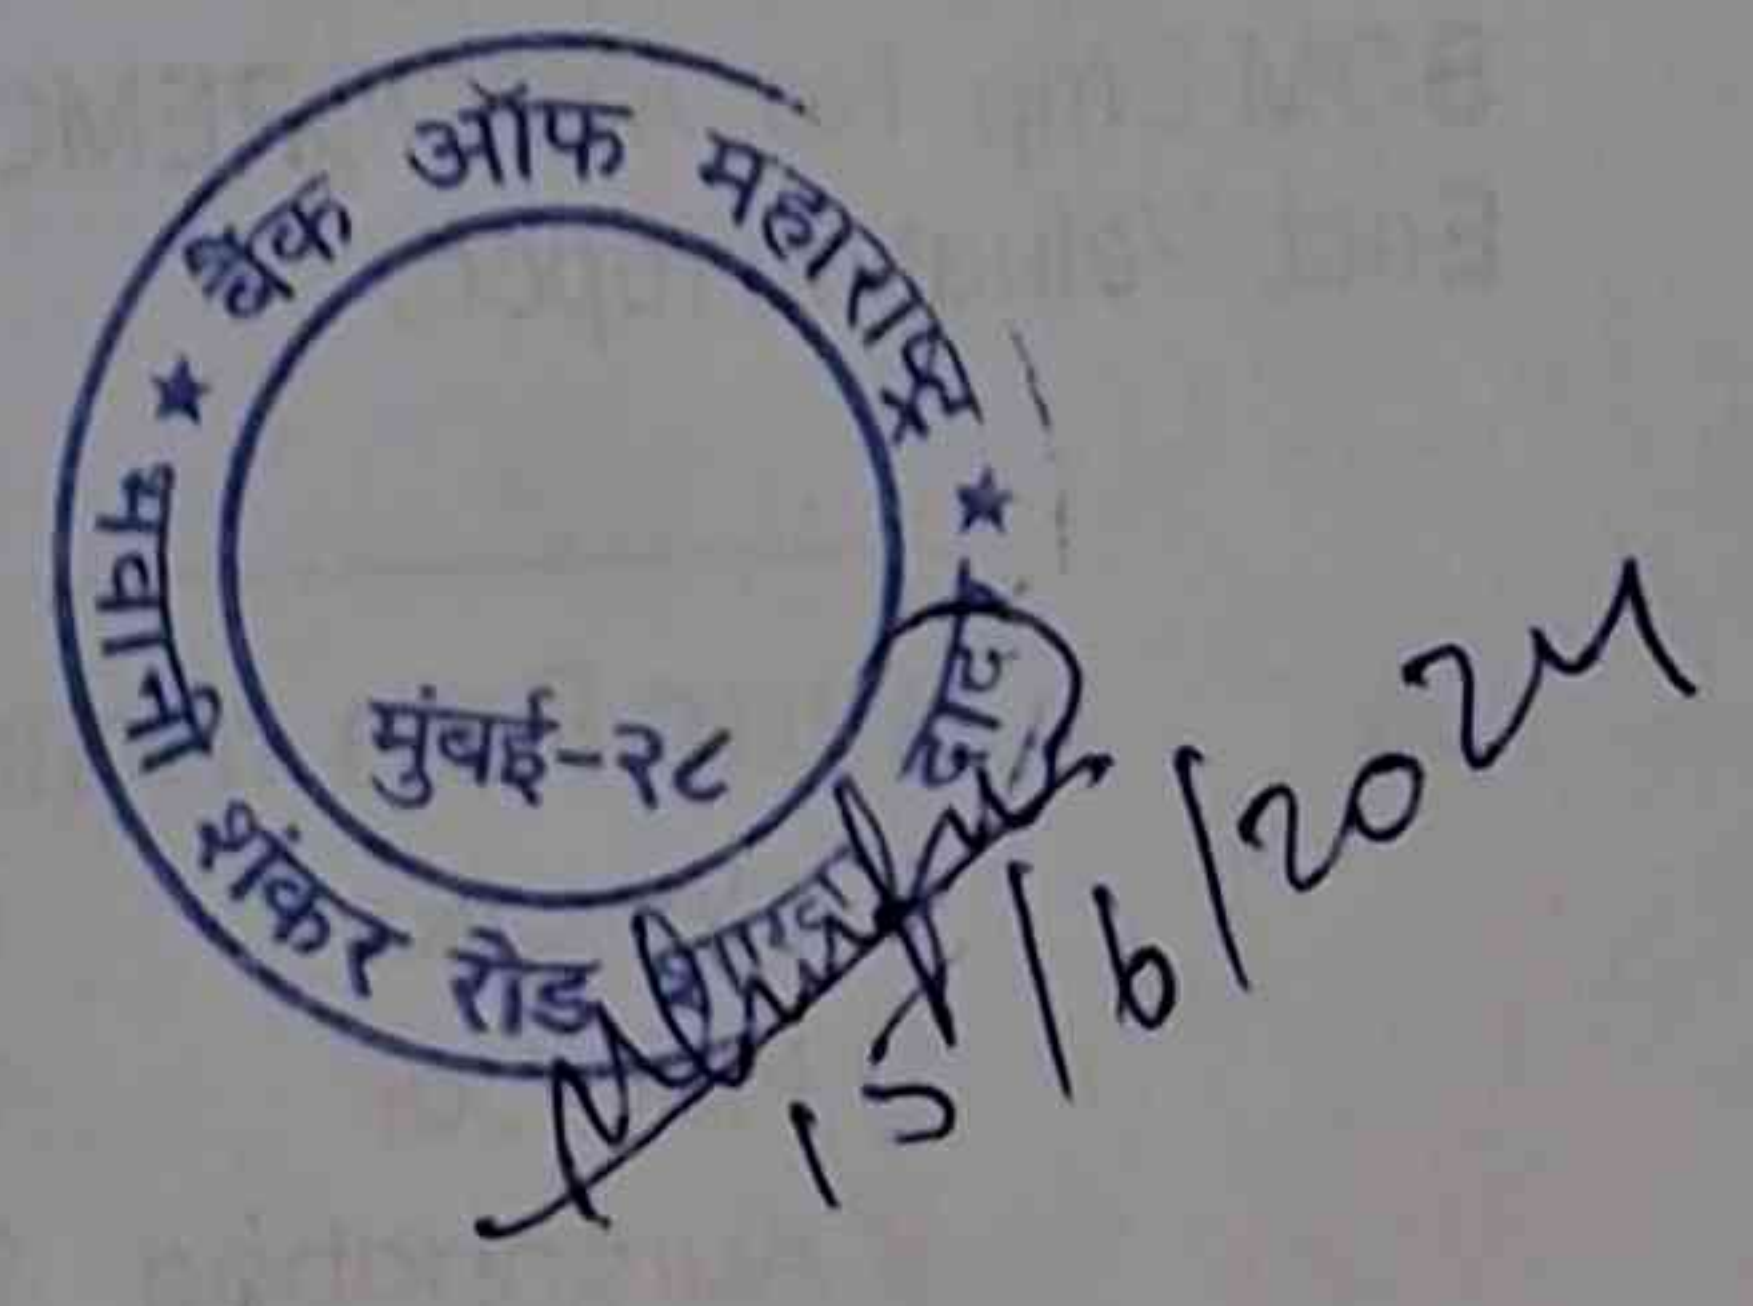 ★ बैंक ऑफ महाराष्ट्र ★
भवानी शंकर रोड शारदा
मुंबई-२८
15/6/2024